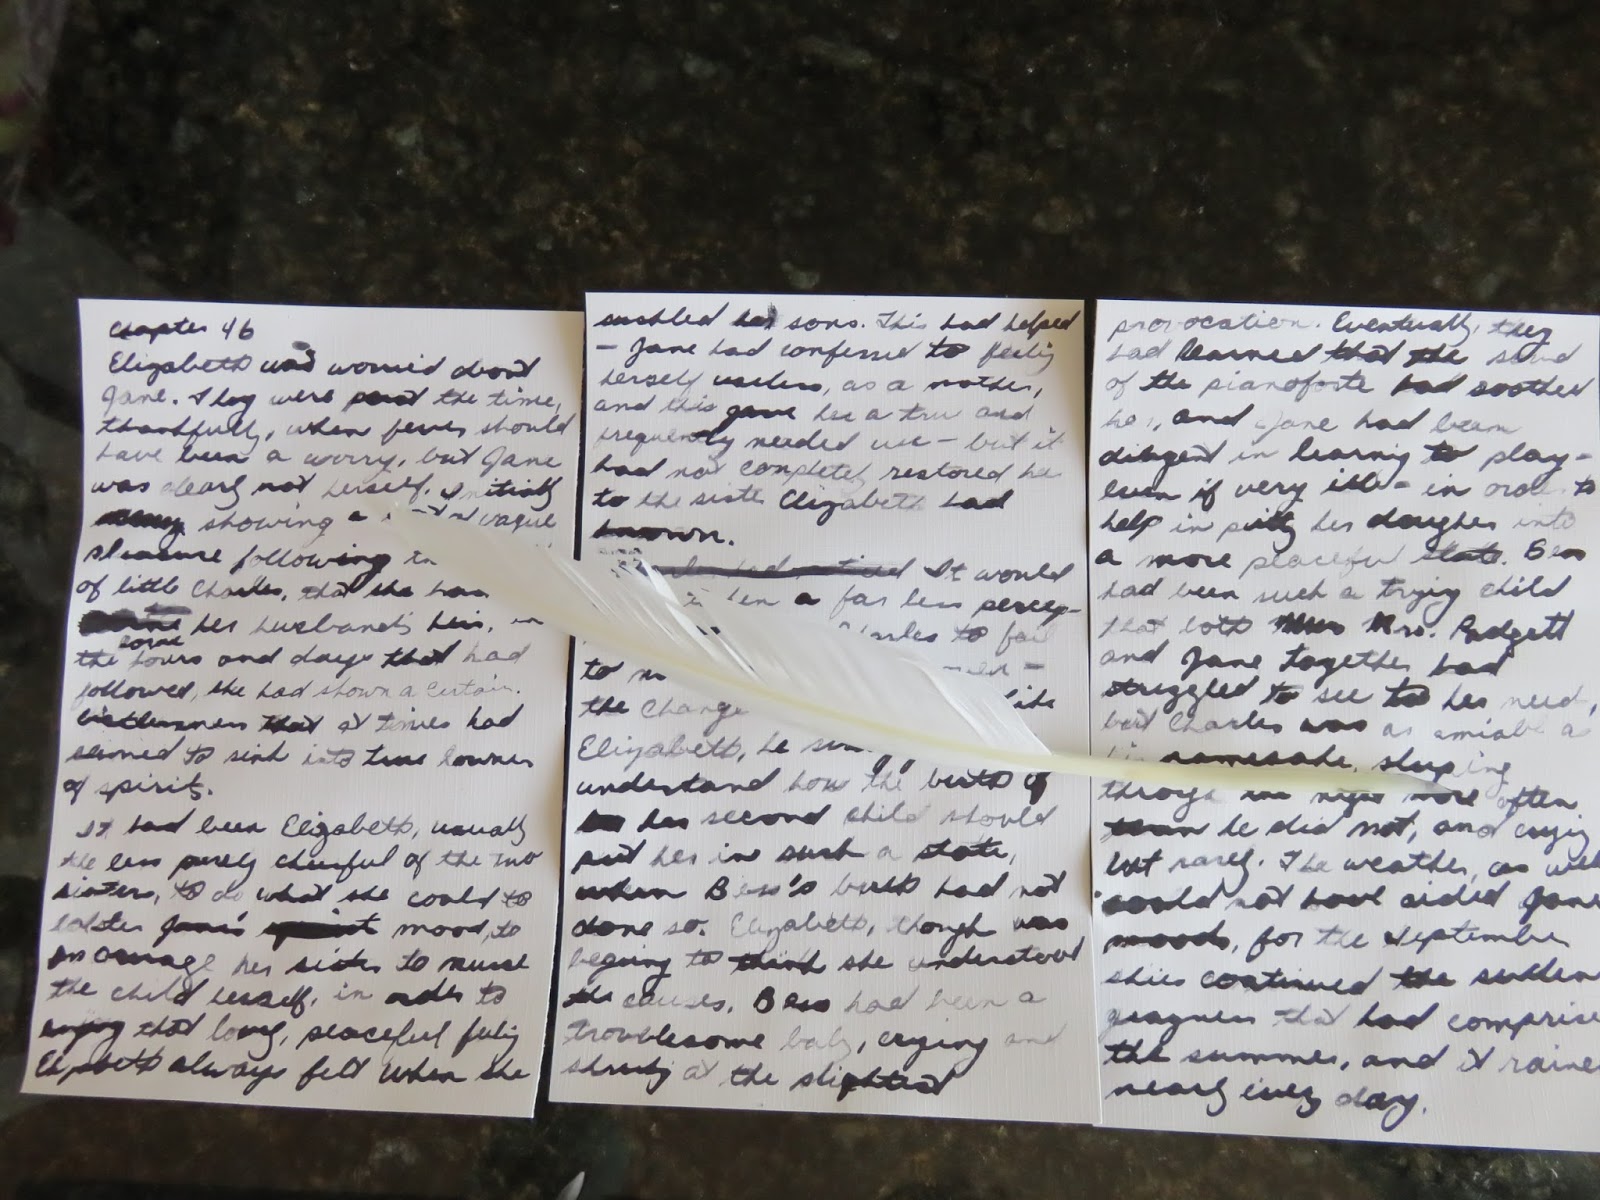 Chapter 46
Elizabeth was worried about
Jane. They were past the time,
thankfully, when fever should
have been a worry, but Jane
was clearly not herself. Initially
showing a vague
pleasure following
of little Charles, that she had
her husband's heir, in
some
the hours and days that had
followed, she had shown a certain
listlessness that at times had
seemed to sink into true lowness
of spirit.
It had been Elizabeth, usually
the less purely cheerful of the two
sisters, to do what she could to
bolster Jane's mood, to
encourage her sister to nurse
the child herself, in order to
enjoy that lovely, peaceful feeling
Elizabeth always felt when she
suckled her sons. This had helped
– Jane had confessed to feeling
herself useless, as a mother,
and this gave her a true and
frequently needed use – but it
had not completely restored her
to the sister Elizabeth had
known.
had noticed It would
been a far less percep-
Charles to fail
to
the change
Elizabeth, he
understand how the birth of
her second child should
put her in such a state,
when Bess's birth had not
done so. Elizabeth, though was
begining to think she understood
the causes. Bess had been a
troublesome baby, crying and
shrieking at the slightest
provocation. Eventually, they
had learned that the sound
of the pianoforte had soothed
her, and Jane had been
diligent in learning to play –
even if very ill – in order to
help in putting her daughter into
a more peaceful state. Bess
had been such a trying child
that both Mrs. Padgett
and Jane together had
struggled to see to her needs,
but Charles was as amiable a
his namesake, sleeping
through the night more often
than he did not, and crying
but rarely. The weather, as well
could not have aided Jane
moods, for the September
skies continued the sullen
grayness that had comprise
the summer, and it raine
nearly every day.